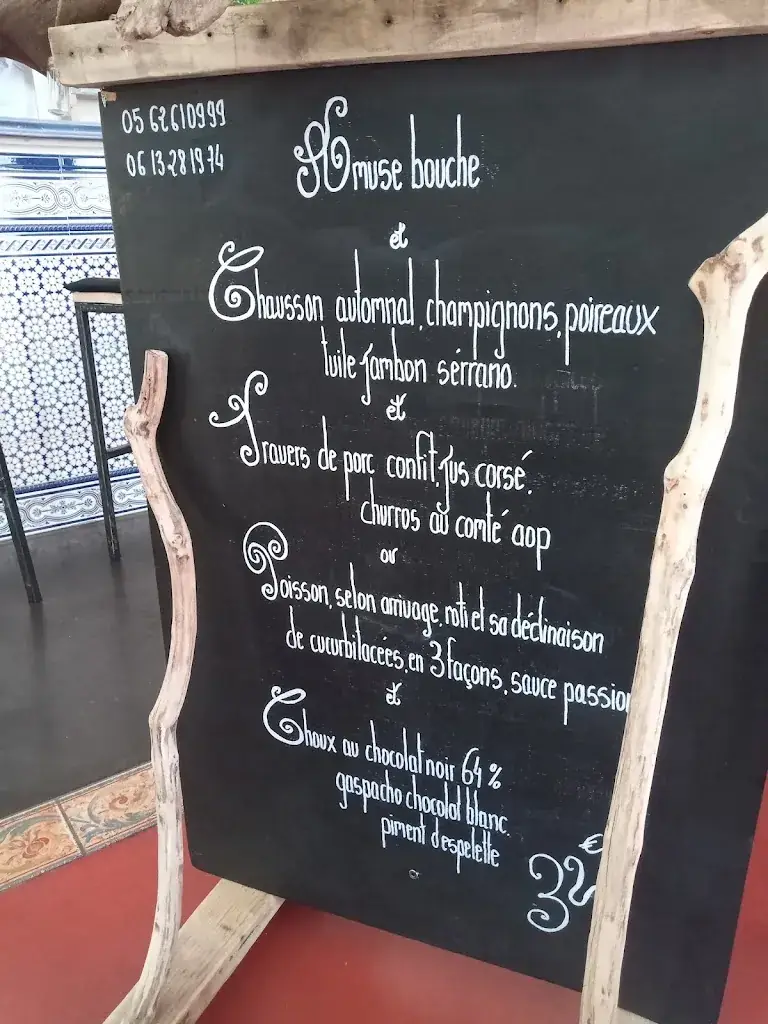 05 62610999
06 13281974
Amuse bouche
et
Chausson automnal, champignons, poireaux
tuile jambon sérrano.
et
Travers de porc confit, jus corsé,
churros au comté aop
ou
Poisson, selon arrivage, roti et sa déclinaison
de cucurbitacées, en 3 façons, sauce passion
et
Choux au chocolat noir 64 %
gaspacho chocolat blanc.
piment d'espelette